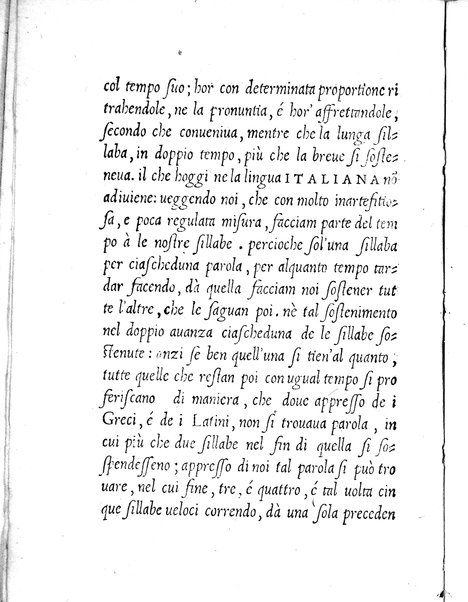 col tempo ſuo; hor con determinata proportione ri
trahendole, ne la pronuntia, é hor' affrettandole,
ſecondo che conueniua, mentre che la lunga ſil-
laba, in doppio tempo, più che la breue ſi ſoſte-
neua. il che hoggi ne la lingua ITALIANA nõ
adiuiene: ueggendo noi, che con molto inartefitio-
ſa, e poca regulata miſura, facciam parte del tem
po à le noſtre ſillabe. percioche ſol'una ſillaba
per ciaſcheduna parola, per alquanto tempo tar-
dar facendo, dà quella facciam noi ſoſtener tut
te l'altre, che le ſaguan poi. nè tal ſoſtenimento
nel doppio auanza ciaſcheduna de le ſillabe ſo-
ſtenute: anzi ſe ben quell'una ſi tien'al quanto,
tutte quelle che reſtan poi con ugual tempo ſi pro
feriſcano di maniera, che doue appreſſo de i
Greci, é de i Latini, non ſi trouaua parola, in
cui più che due ſillabe nel fin di quella ſi ſo-
ſpendeſſeno; appreſſo di noi tal parola ſi può tro
uare, nel cui fine, tre, é quattro, é tal uolta cin
que ſillabe ueloci correndo, dà una ſola preceden